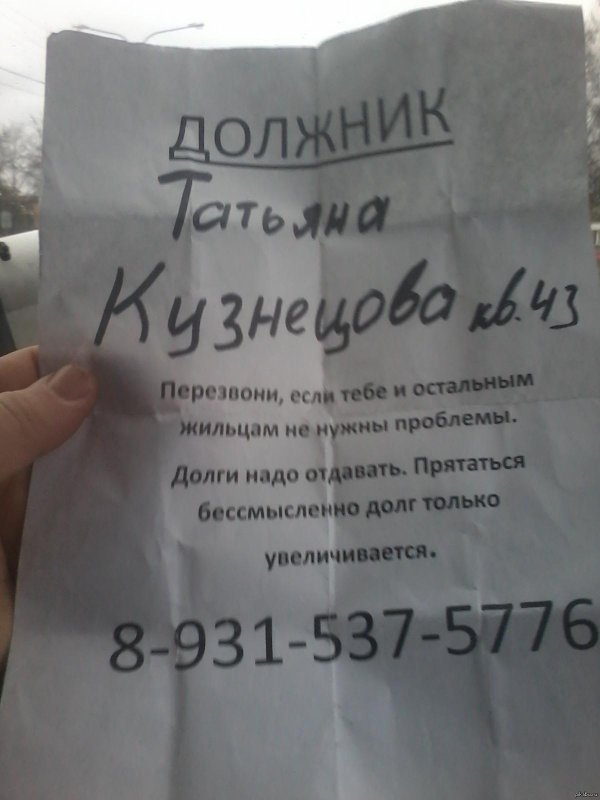 ДОЛЖНИК
Татьяна
Кузнецова кв. 43
Перезвони, если тебе и остальным
жильцам не нужны проблемы.
Долги надо отдавать. Прятаться
бессмысленно долг только
увеличивается.
8-931-537-5776